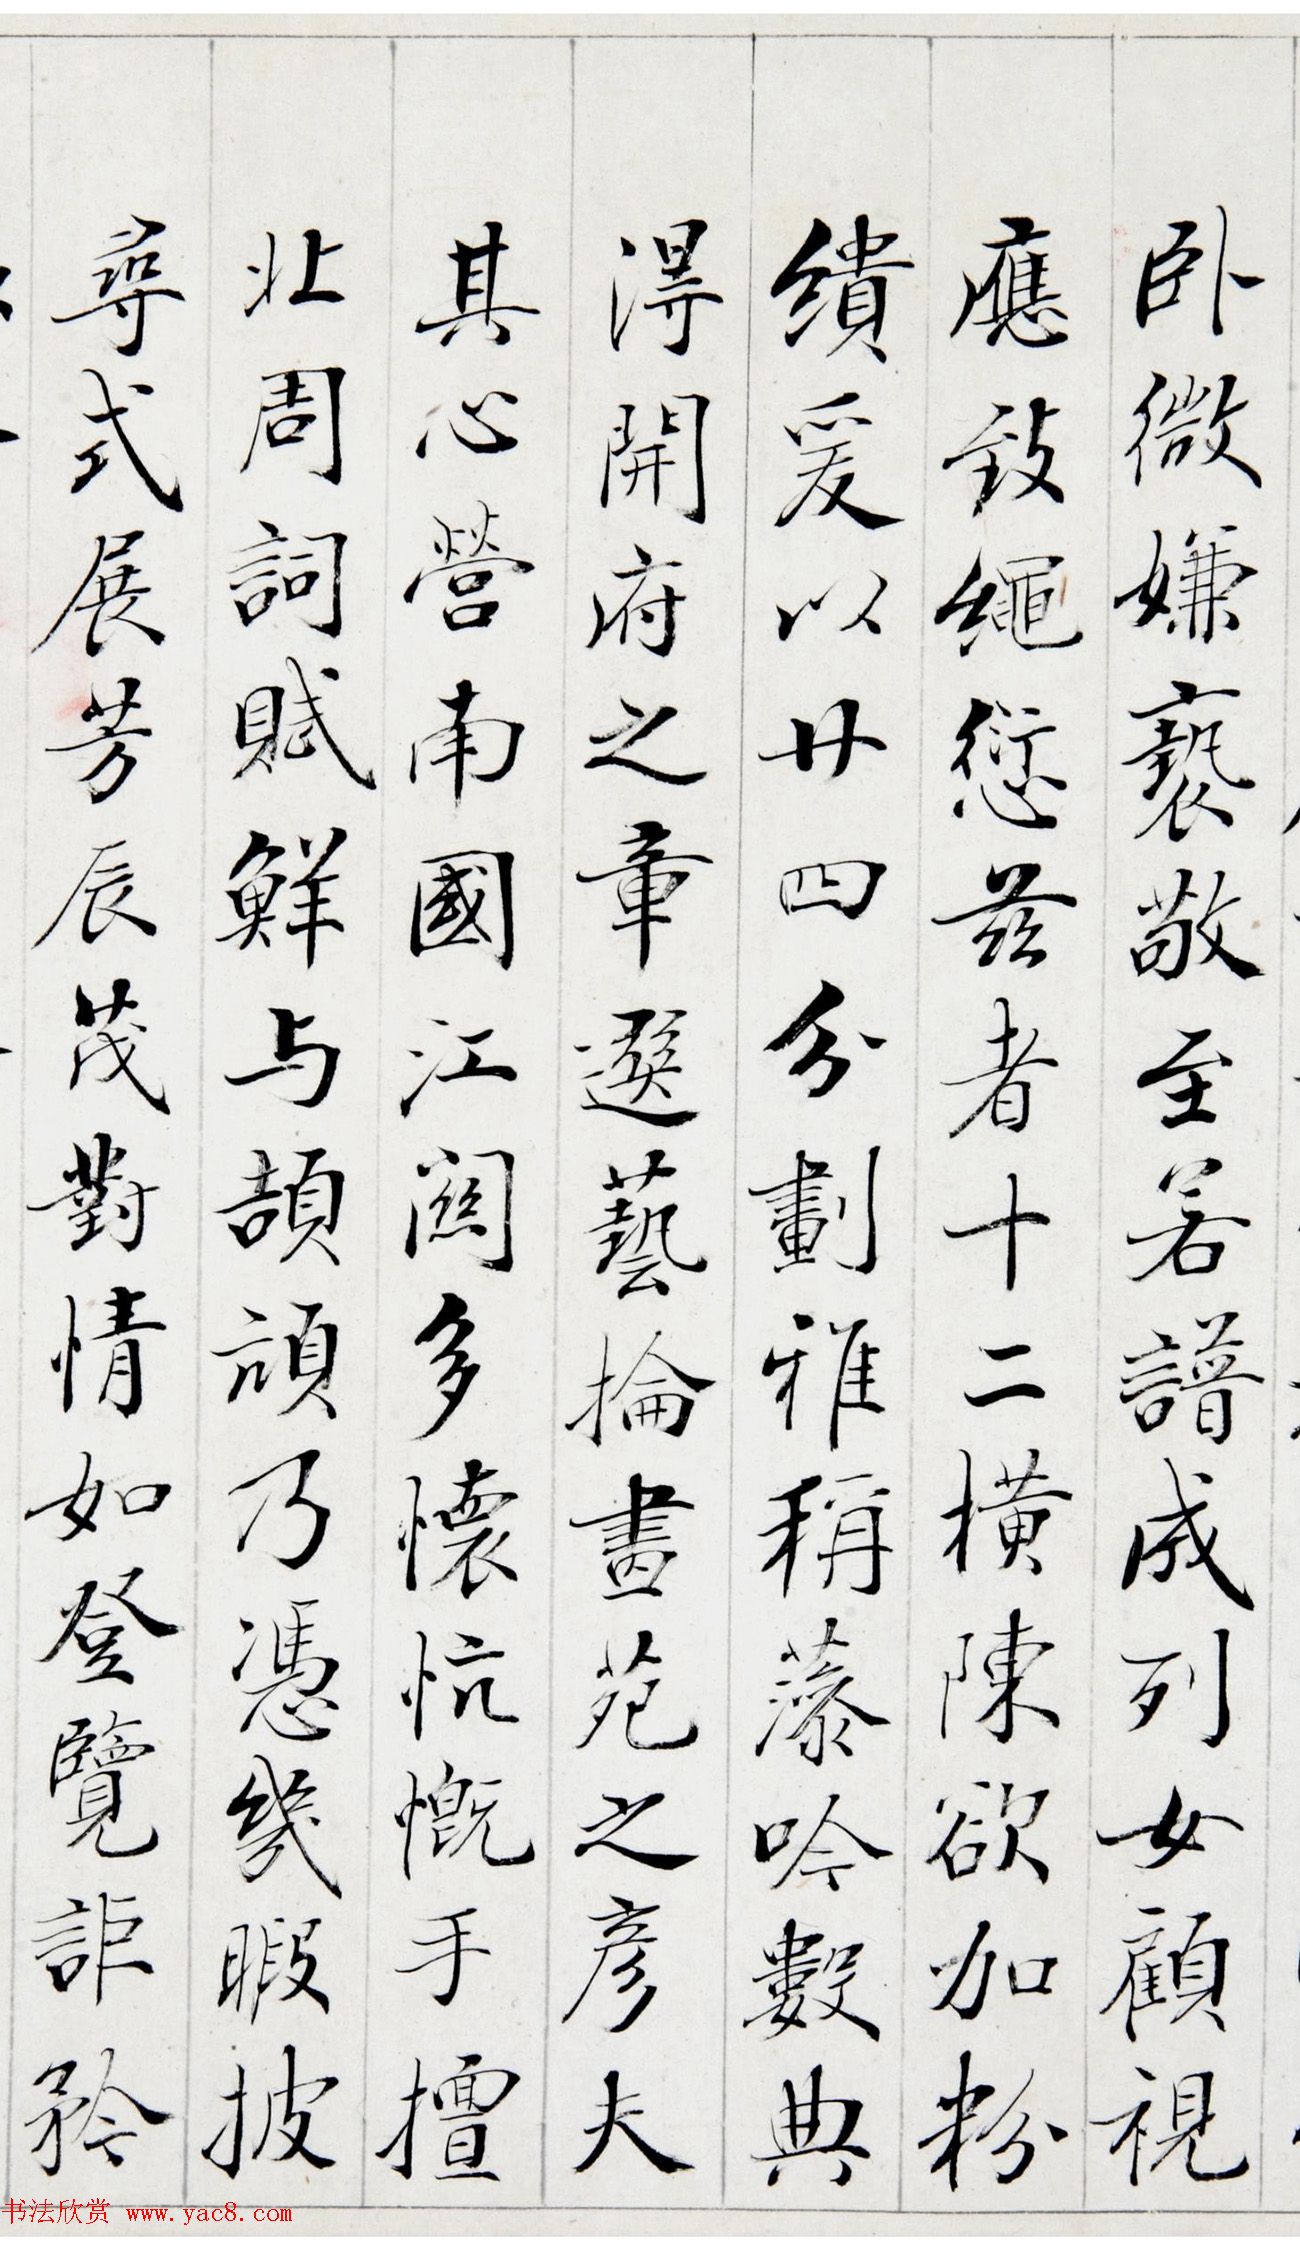 卧微嫌褻敬至若譜成列女顧視
應致繩愆兹者十二橫陳欲加粉
繢爰以廿四分劃雅稱藻吟數典
淂開府之章選藝掄畫苑之彥夫
其心營南國江関多懷忼慨手擅
北周詞賦鮮与頡頏乃憑幾暇披
尋式展芳辰茂對情如登覽詎矜
书法欣赏 www.yac8.com